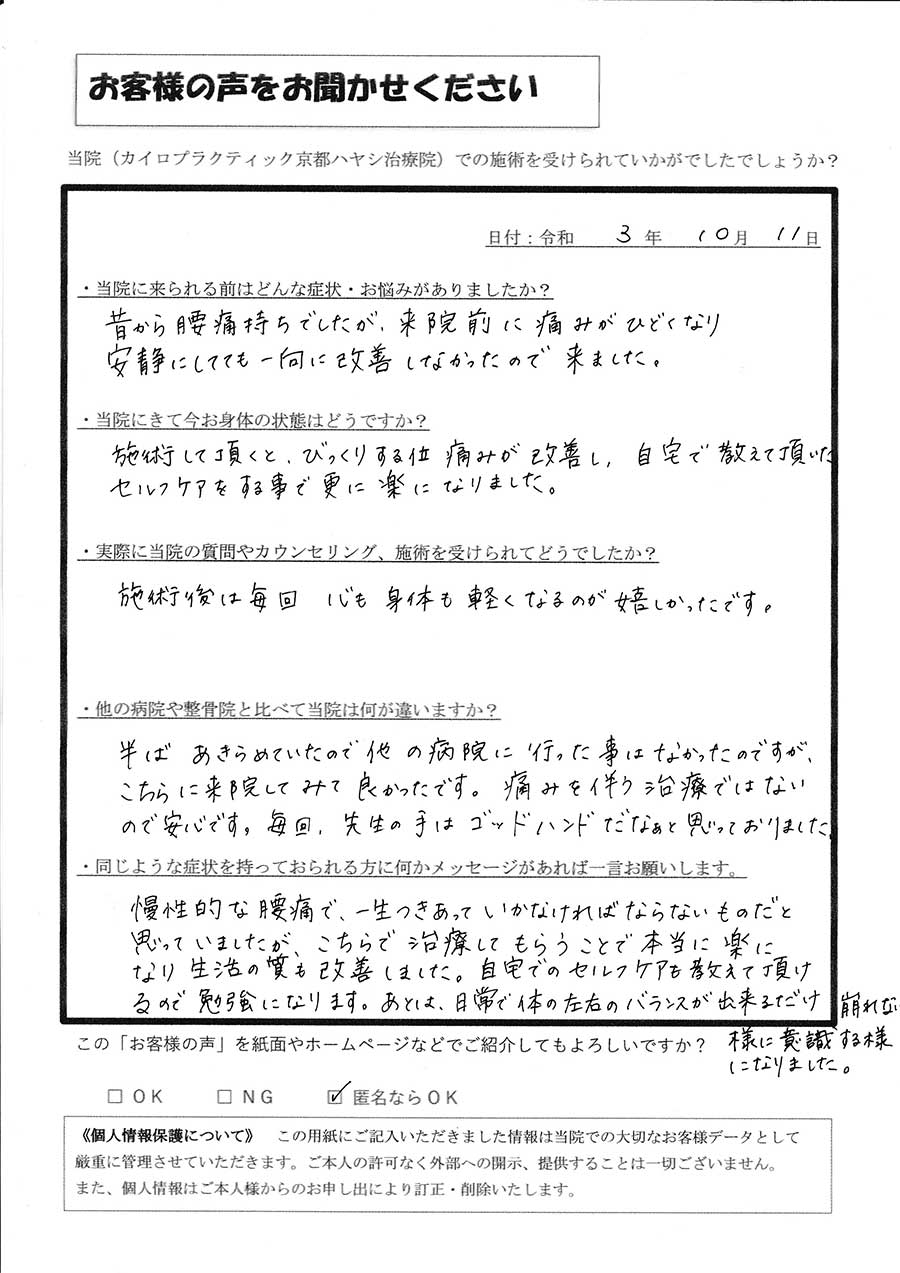 お客様の声をお聞かせください
当院（カイロプラクティック京都ハヤシ治療院）での施術を受けられていかがでしたでしょうか？
日付：令和　3年　10月　11日
・当院に来られる前はどんな症状・お悩みがありましたか？
昔から腰痛持ちでしたが、来院前に痛みがひどくなり
安静にしてても一向に改善しなかったので来ました。
・当院にきて今お身体の状態はどうですか？
施術して頂くと、びっくりする位痛みが改善し、自宅で教えて頂いた
セルフケアをする事で更に楽になりました。
・実際に当院の質問やカウンセリング、施術を受けられてどうでしたか？
施術後は毎回心も身体も軽くなるのが嬉しかったです。
・他の病院や整骨院と比べて当院は何が違いますか？
半ばあきらめていたので他の病院に行った事はなかったのですが、
こちらに来院してみて良かったです。痛みを伴う治療ではない
ので安心です。毎回、先生の手はゴッドハンドだなぁと思っておりました。
・同じような症状を持っておられる方に何かメッセージがあれば一言お願いします。
慢性的な腰痛で、一生つきあっていかなければならないものだと
思っていましたが、こちらで治療してもらうことで本当に楽に
なり生活の質も改善しました。自宅でのセルフケアを教えて頂け
るので勉強になります。あとは、日常で体の左右のバランスが出来るだけ崩れない
様に意識する様
になりました。
この「お客様の声」を紙面やホームページなどでご紹介してもよろしいですか？
□ OK　□ NG　☑ 匿名ならOK
《個人情報保護について》　この用紙にご記入いただきました情報は当院での大切なお客様データとして
厳重に管理させていただきます。ご本人の許可なく外部への開示、提供することは一切ございません。
また、個人情報はご本人様からのお申し出により訂正・削除いたします。